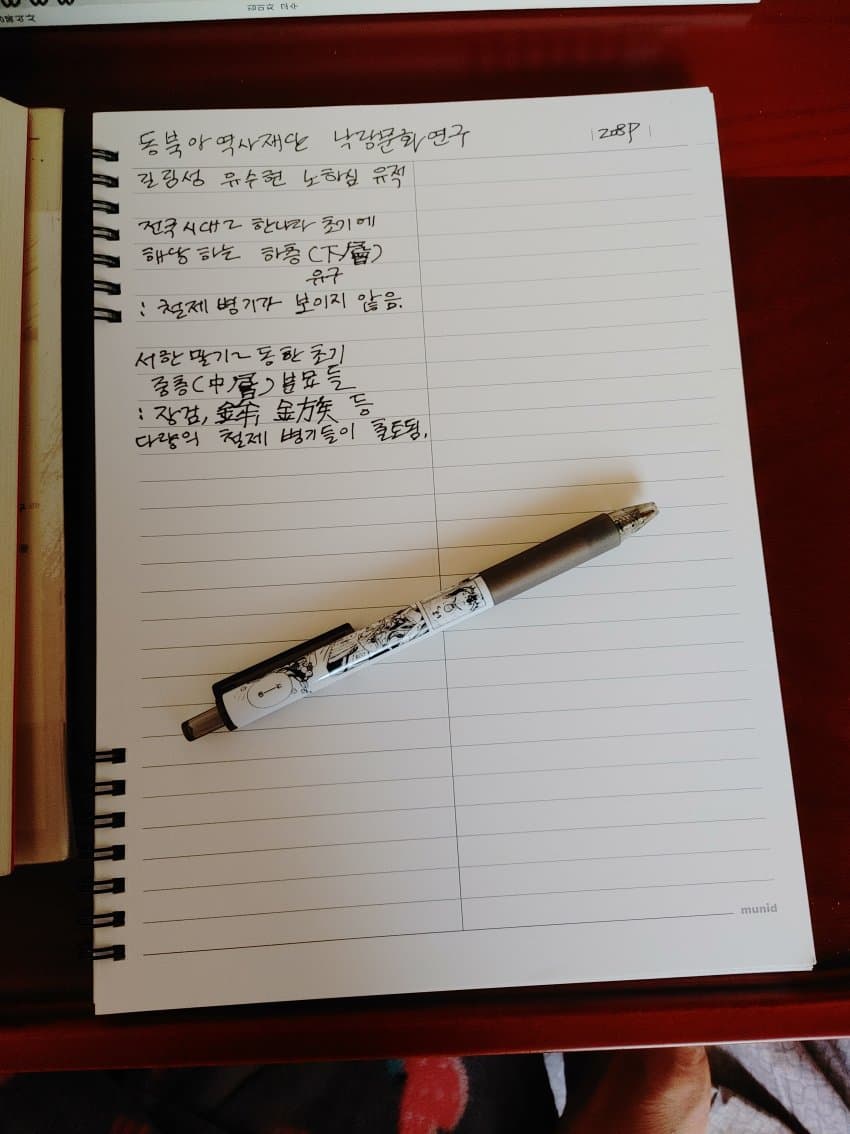 동북아역사재단 낙랑문화연구 208P
길림성 유수현 노하심 유적
전국시대~ 한나라 초기에
해당하는 하층(下層)
유구
: 철제 병기가 보이지 않음.
서한 말기~ 동한 초기
중층(中層) 분묘들
: 장검, 鉾, 鏃 등
다량의 철제 병기들이 출토됨.
munid